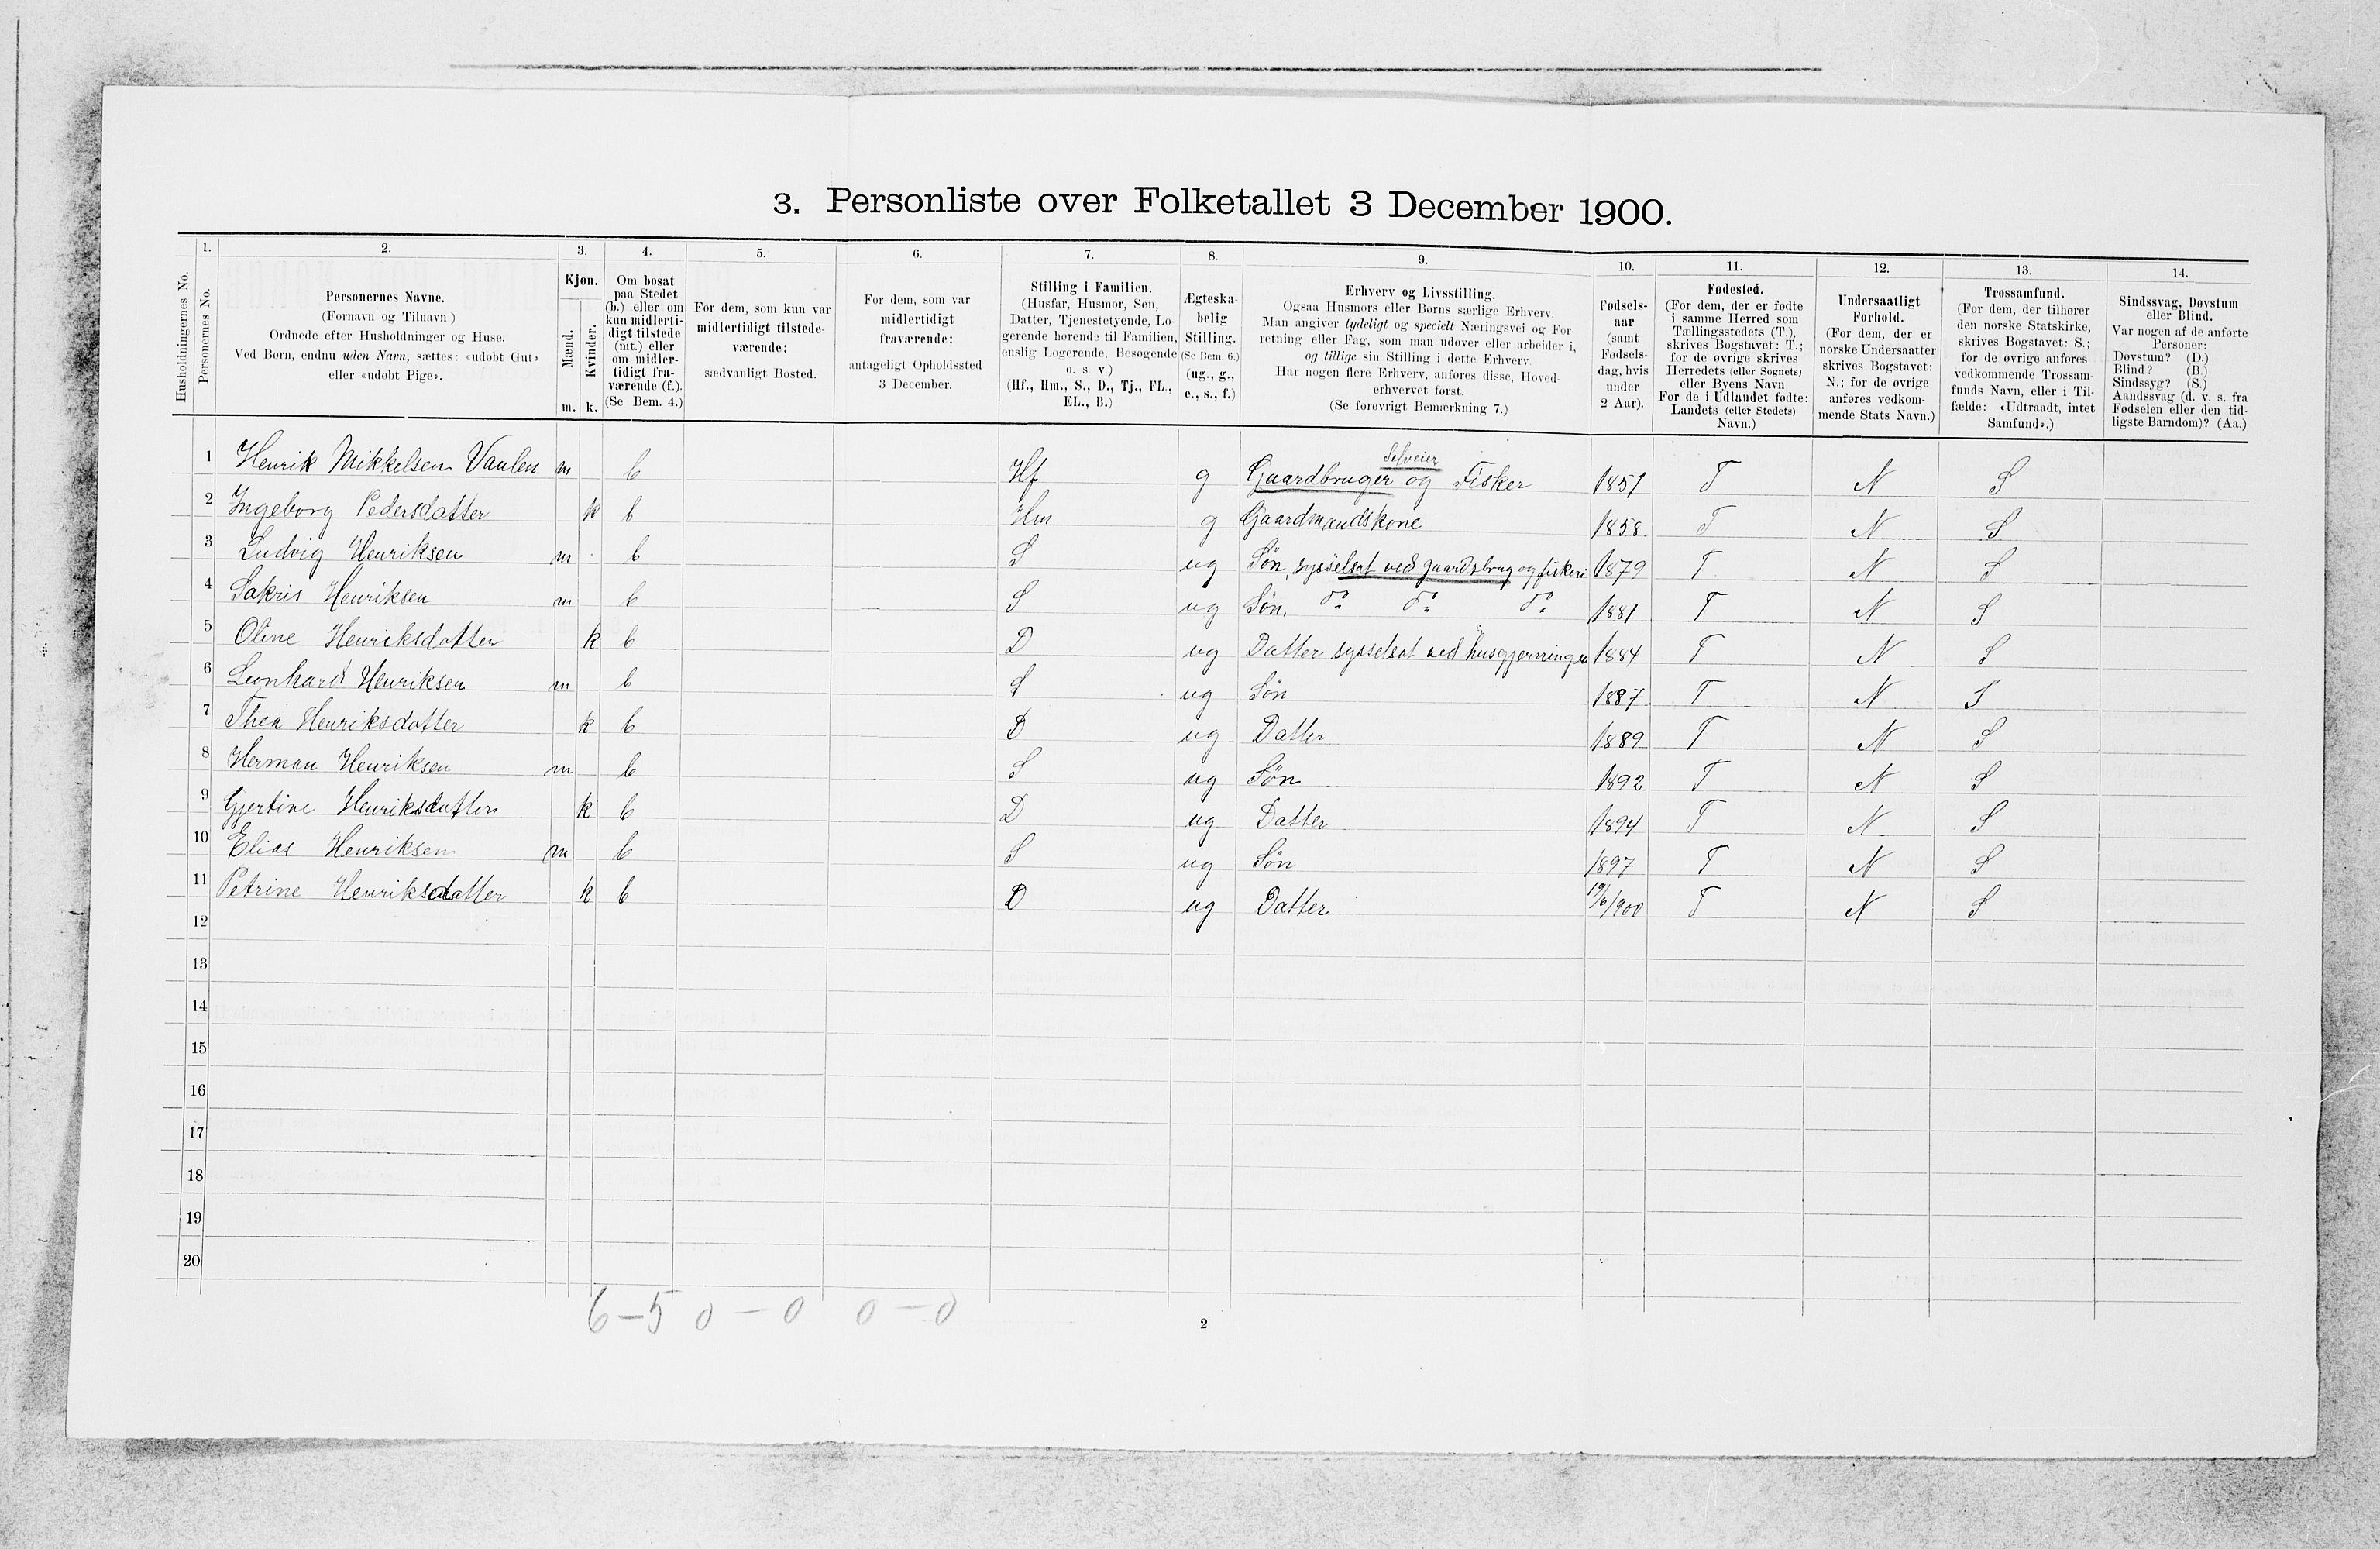 3. Personliste over Folketallet 3 December 1900.
1. 2. 3. 4. 5. 6. 7. 8. 9. 10. 11. 12. 13. 14.
Husholdningernes No.
Personernes No.
Personernes Navne.
(Fornavn og Tilnavn)
Ordnede efter Husholdninger og Huse.
Ved Børn, endnu uden Navn, sættes: «udøbt Gut»
eller «udøbt Pige».
Kjøn.
Mænd.
Kvinder.
m. k.
Om bosat
paa Stedet
(b.) eller om
kun midlerti-
digt tilstede
(mt.) eller
om midler-
tidigt fra-
værende (f.).
(Se Bem. 4.)
For dem, som kun var
midlertidigt tilstede-
værende:
sædvanligt Bosted.
For dem, som var
midlertidigt
fraværende:
antageligt Opholdssted
3 December.
Stilling i Familien.
(Husfar, Husmor, Søn,
Datter, Tjenestetyende, Lo-
gerende hørende til Familien,
enslig Logerende, Besøgende
o. s v.)
(Hf., Hm., S., D., Tj., FL.,
EL., B.)
Ægteska-
belig
Stilling.
(Se Bem. 6.)
(ug., g.,
e., s., f.)
Erhverv og Livsstilling.
Ogsaa Husmors eller Børns særlige Erhverv.
Man angiver tydeligt og specielt Næringsvei og For-
retning eller Fag, som man udøver eller arbeider i,
og tillige sin Stilling i dette Erhverv.
Har nogen flere Erhverv, anføres disse, Hoved-
erhvervet først.
(Se forøvrigt Bemærkning 7.)
Fødsels-
aar
(samt
Fødsels-
dag, hvis
under
2 Aar).
Fødested.
(For dem, der er fødte
i samme Herred som
Tællingsstedets (T.),
skrives Bogstavet: T.;
for de øvrige skrives
Herredets (eller Sognets)
eller Byens Navn
For de i Udlandet fødte:
Landets (eller Stedets)
Navn.)
Undersaatligt
Forhold.
(For dem, der er
norske Undersaatter
skrives Bogstavet:
N.; for de øvrige
anføres vedkom-
mende Stats Navn.)
Trossamfund.
(For dem, der tilhører
den norske Statskirke,
skrives Bogstavet: S.;
for de øvrige anføres
vedkommende Trossam-
funds Navn, eller i Til-
fælde: «Udtraadt, intet
Samfund».)
Sindssvag, Døvstum
eller Blind.
Var nogen af de anførte
Personer:
Døvstum? (D.)
Blind? (B.)
Sindssyg? (S.)
Aandssvag (d. v. s. fra
Fødselen eller den tid-
ligste Barndom)? (Aa.)
Selveier
1 Henrik Mikkelsen Vaulen m b Hf g Gaardbruger og Fisker 1851 T N S
2 Ingeborg Pedersdatter k b Hm g Gaardmandskone 1858 T N S
3 Ludvig Henriksen m b S ug Søn, sysselsat ved gaardsbrug og fiskeri 1879 T N S
4 Sakris Henriksen m b S ug Søn. Do Do Do 1881 T N S
5 Oline Henriksdatter k b D ug Datter sysselsat ved husgjerningen 1884 T N S
6 Leonhard Henriksen m b S ug Søn 1887 T N S
7 Thea Henriksdatter k b D ug Datter 1889 T N S
8 Herman Henriksen m b S ug Søn 1892 T N S
9 Gjertine Henriksdatter k b D ug Datter 1894 T N S
10 Elias Henriksen m b S ug Søn 1897 T N S
11 Petrine Henriksdatter k b D ug Datter 19/6/900 T N S
12
13
14
15
16
17
18
19
20
6-5 0-0 0-0
2